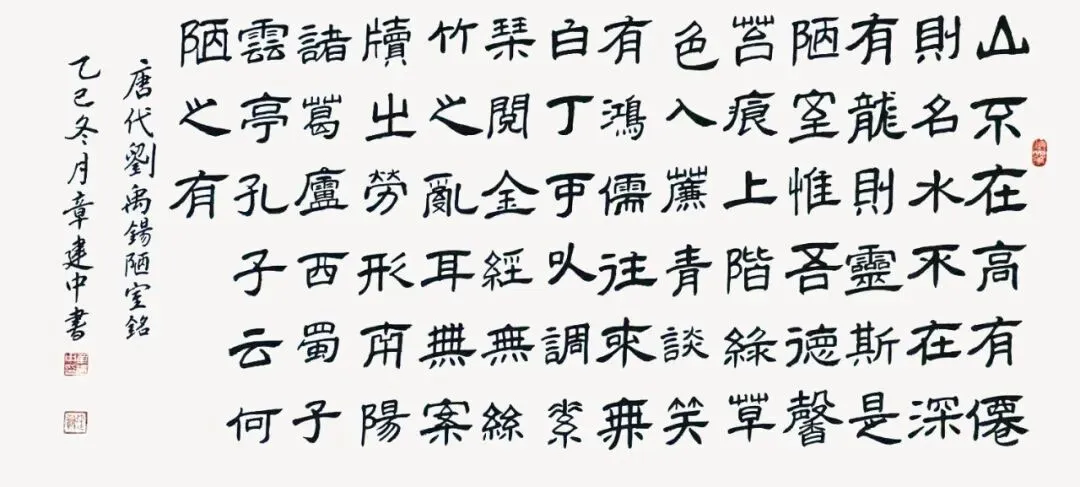 山不在高有僊
則名水不在深
有龍則靈斯是
陋室惟吾德馨
苔痕上階綠草
色入薕青談笑
有鴻儒往來無
白丁可以調素
琴閱金經無絲
竹之亂耳無案
牘之勞形南陽
諸葛廬西蜀子
雲亭孔子云何
陋之有
唐代劉禹錫陋室銘
乙巳冬月章建中書